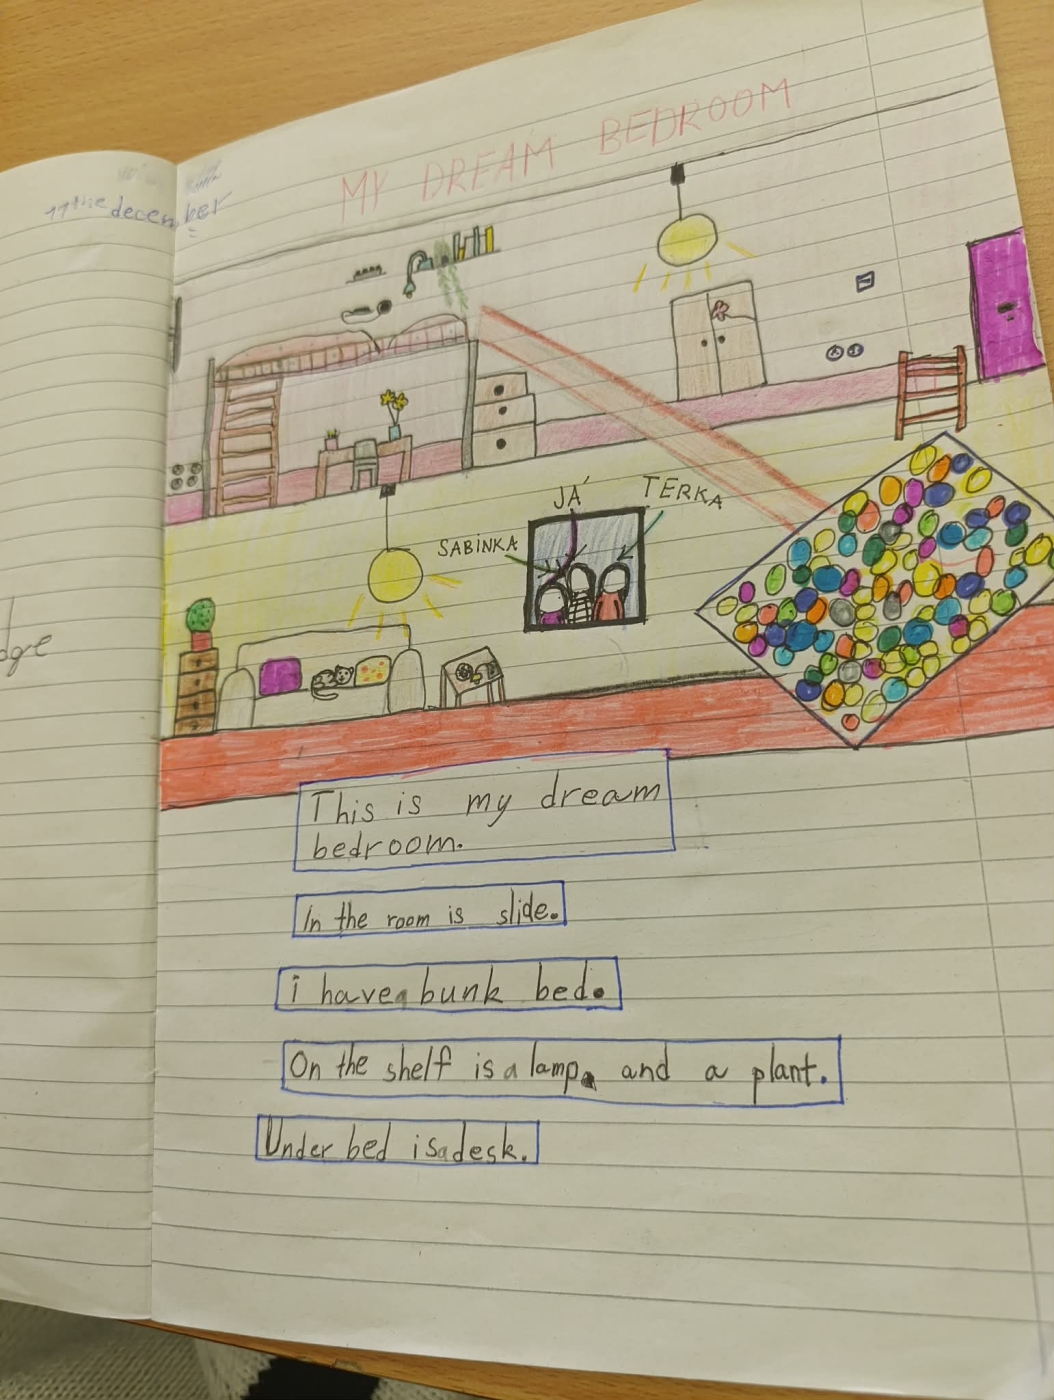 11the december
MY DREAM BEDROOM
JÁ
TERKA
SABINKA
This is my dream
bedroom.
In the room is slide.
i have a bunk bed.
On the shelf is a lamp and a plant.
Under bed is a desk.